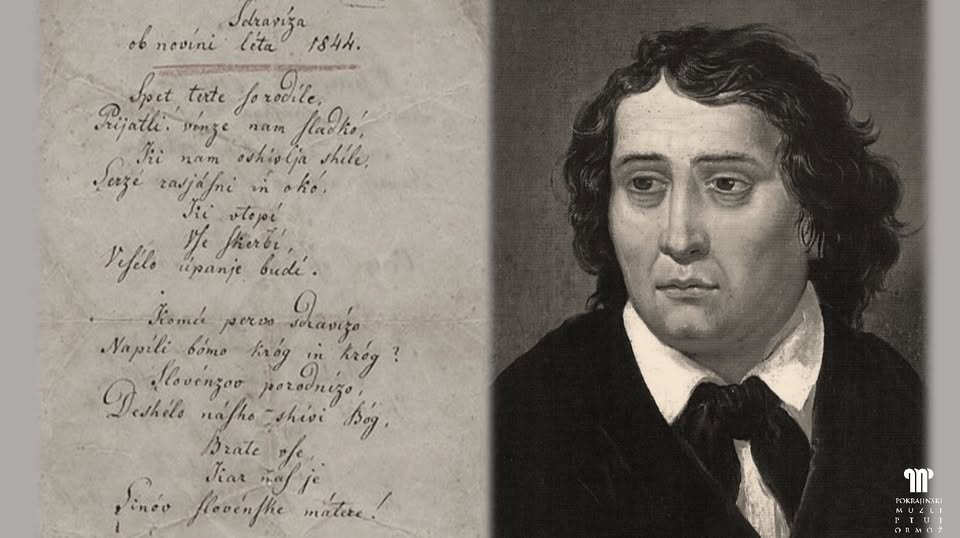 Sdravíza
ob novíni léta 1844.
Spet terte so rodíle,
Prijatli! vínze nam sladkó,
Ki nam oshívlja shíle,
Serzé rasjásni in okó,
Ki vtopí
Vse skerbí,
Vesélo úpanje budí.
Komú pervo sdravízo
Napíli bómo króg in króg?
Slovénzov porodnízo,
Deshélo násho shívi Bóg,
Brate vse
Kar nas je
Sinóv slovénske mátere!
POKRAJINSKI
MUZEJ
PTUJ
ORMOŽ